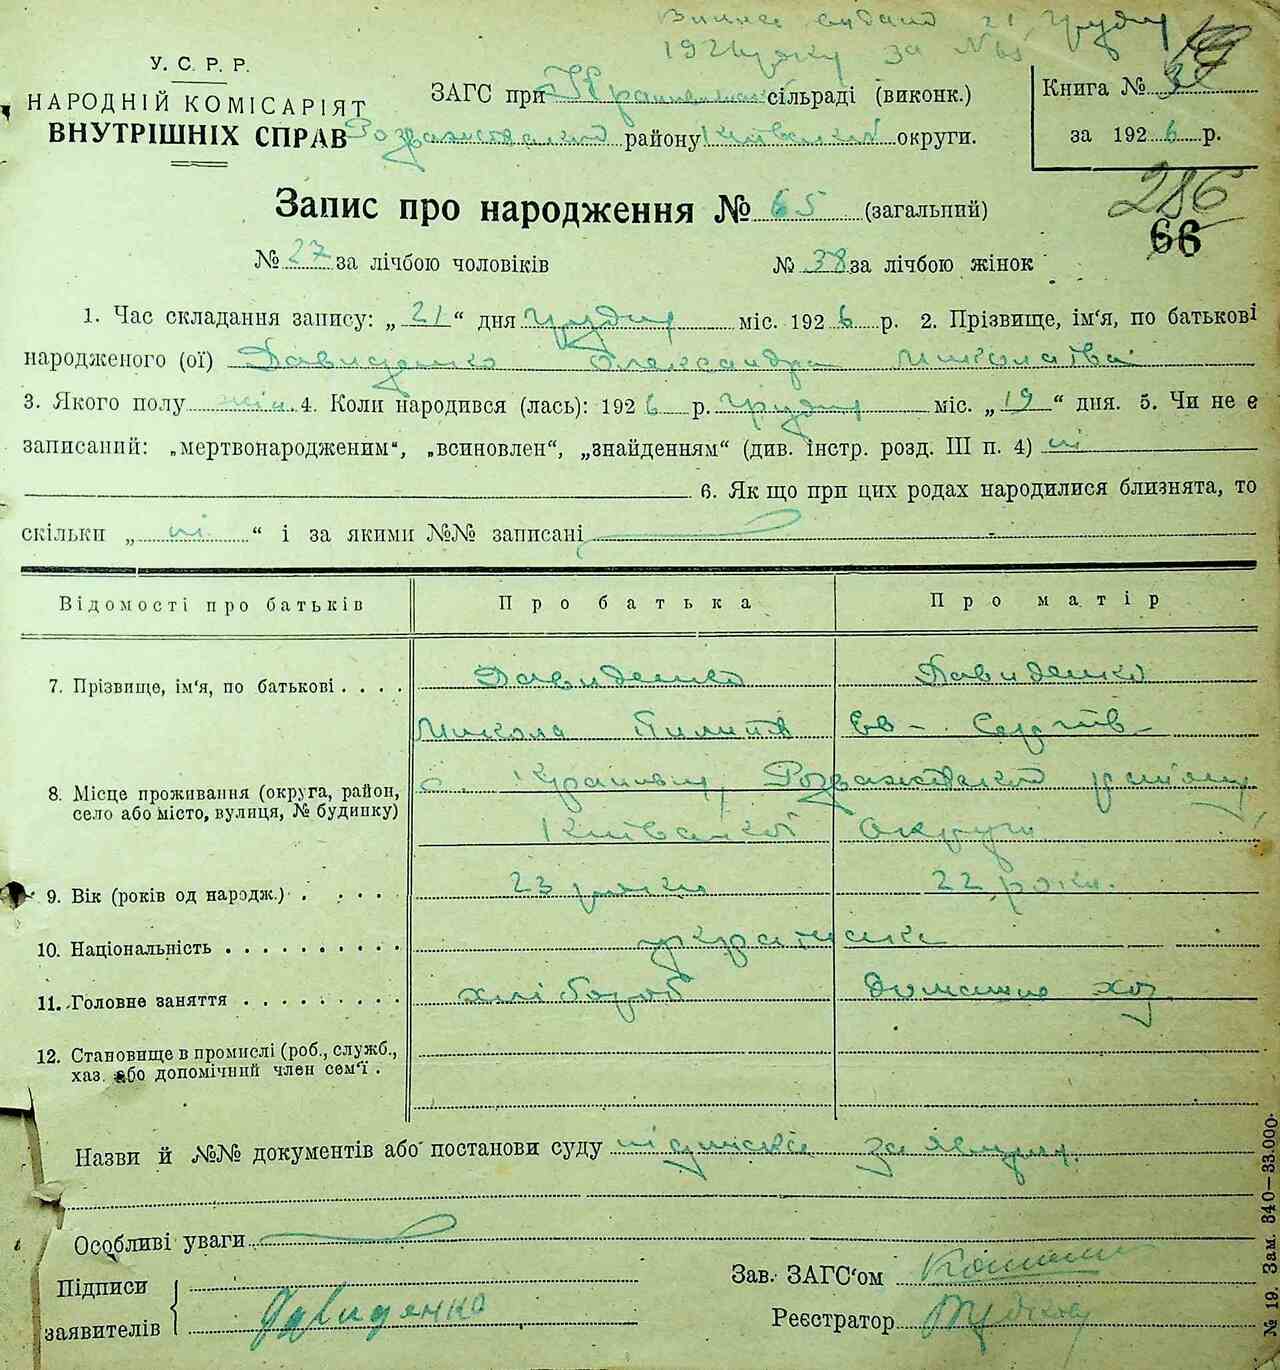 Виписка видана 21 грудня
1926 року за №
У. С. Р. Р.
НАРОДНІЙ КОМІСАРІЯТ
ВНУТРІШНІХ СПРАВ
ЗАГС при сільраді (виконк.)
Розважівського району Київської округи.
Книга №
за 1926 р.
286
66
Запис про народження № 65 (загальний)
№ 27 за лічбою чоловіків № 38 за лічбою жінок
1. Час складання запису: „21“ дня грудня міс. 1926 р. 2. Прізвище, ім‘я, по батькові
народженого (ої) Давиденко Олександра Миколаїва
3. Якого полу жін. 4. Коли народився (лась): 1926 р. грудня міс. „19“ дня. 5. Чи не є
записаний: „мертвонародженим“, „всиновлен“, „знайденням“ (див. інстр. розд. III п. 4) ні
6. Як що при цих родах народилися близнята, то
скільки „ні“ і за якими №№ записані
Відомості про батьків Про батька Про матір
7. Прізвище, ім‘я, по батькові . . . . Давиденко Давиденко
Микола Пилипів Ев- Сергіїв-
8. Місце проживання (округа, район,
село або місто, вулиця, № будинку)
с. Розважівського району,
Київської округи
9. Вік (років од народж.) . . . . . 23 роки 22 роки.
10. Національність . . . . . . . . . . українка
11. Головне заняття . . . . . . . . . хлібороб домашнє хоз.
12. Становище в промислі (роб., служб.,
хаз. або допомічний член сем‘ї .
Назви й №№ документів або постанови суду підписка заявника.
Особливі уваги
Підписи
заявителів
Давидянко
Зав. ЗАГС‘ом
Реєстратор
№ 19. Зам. 840—33.000.